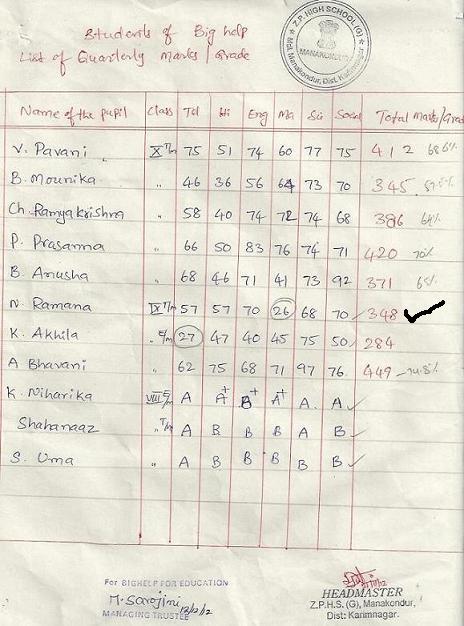 Students of Big help
List of Quarterly Marks/Grade
Z.P. HIGH SCHOOL (G)
MANAKONDUR
Mdl. Manakondur, Dist. Karimnagar.
Name of the pupil Class Tel Hi Eng Ma Sci Social Total Marks/Grade
V. Pavani X T/m 75 51 74 60 77 75 412 68.6%
B. Mounika " 46 36 56 64 73 70 345 57.5%
Ch. Ramyakrishna " 58 40 74 72 74 68 386 64%
P. Prasanna " 66 50 83 76 74 71 420 70%
B. Anusha " 68 46 71 41 73 92 371 65%
N. Ramana IX T/m 57 57 70 26 68 70 348
K. Akhila " E/m 27 47 40 45 75 50 284
A Bhavani " 62 75 68 71 97 76 449 74.8%
K. Niharika VIII E/m A A+ B+ A+ A A
Shahanaaz " T/m A B B B A B
S. Uma " A B B B B B
For BIGHELP FOR EDUCATION
M. Sarojini 12/2/12
MANAGING TRUSTEE
HEADMASTER
Z.P.H.S. (G), Manakondur,
Dist: Karimnagar.